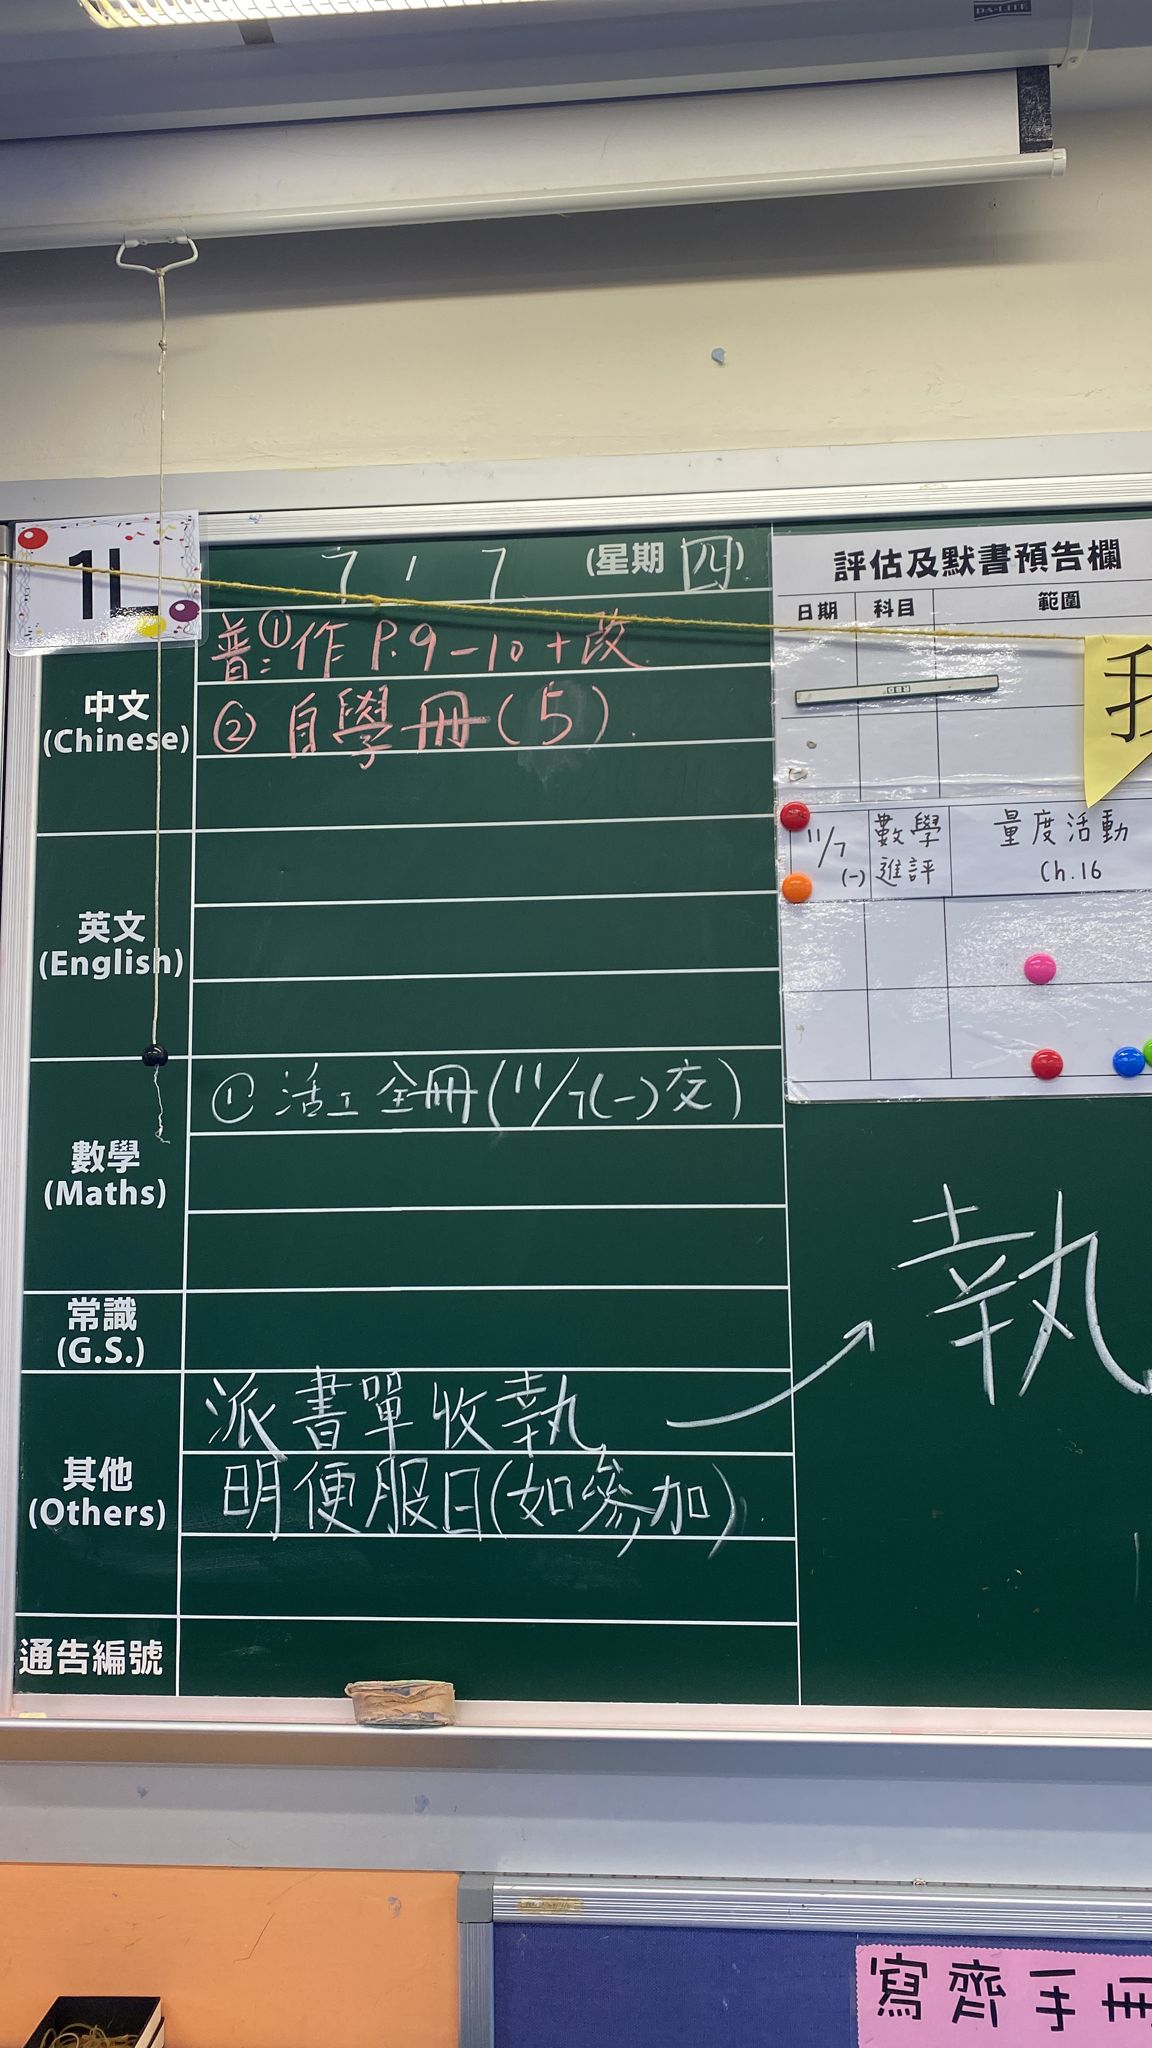 DA-LITE
1L
7 / 7 (星期 四)
中文
(Chinese)
普: ① 作 P.9-10+改
② 自學冊(5).
英文
(English)
數學
(Maths)
① 活工 全冊(11/7(一)交)
常識
(G.S.)
其他
(Others)
派書單收執
明便服日(如參加).
通告編號
評估及默書預告欄
日期 科目 範圍
11/7 (一) 數學進評 量度活動 Ch.16
我
執
寫齊手冊